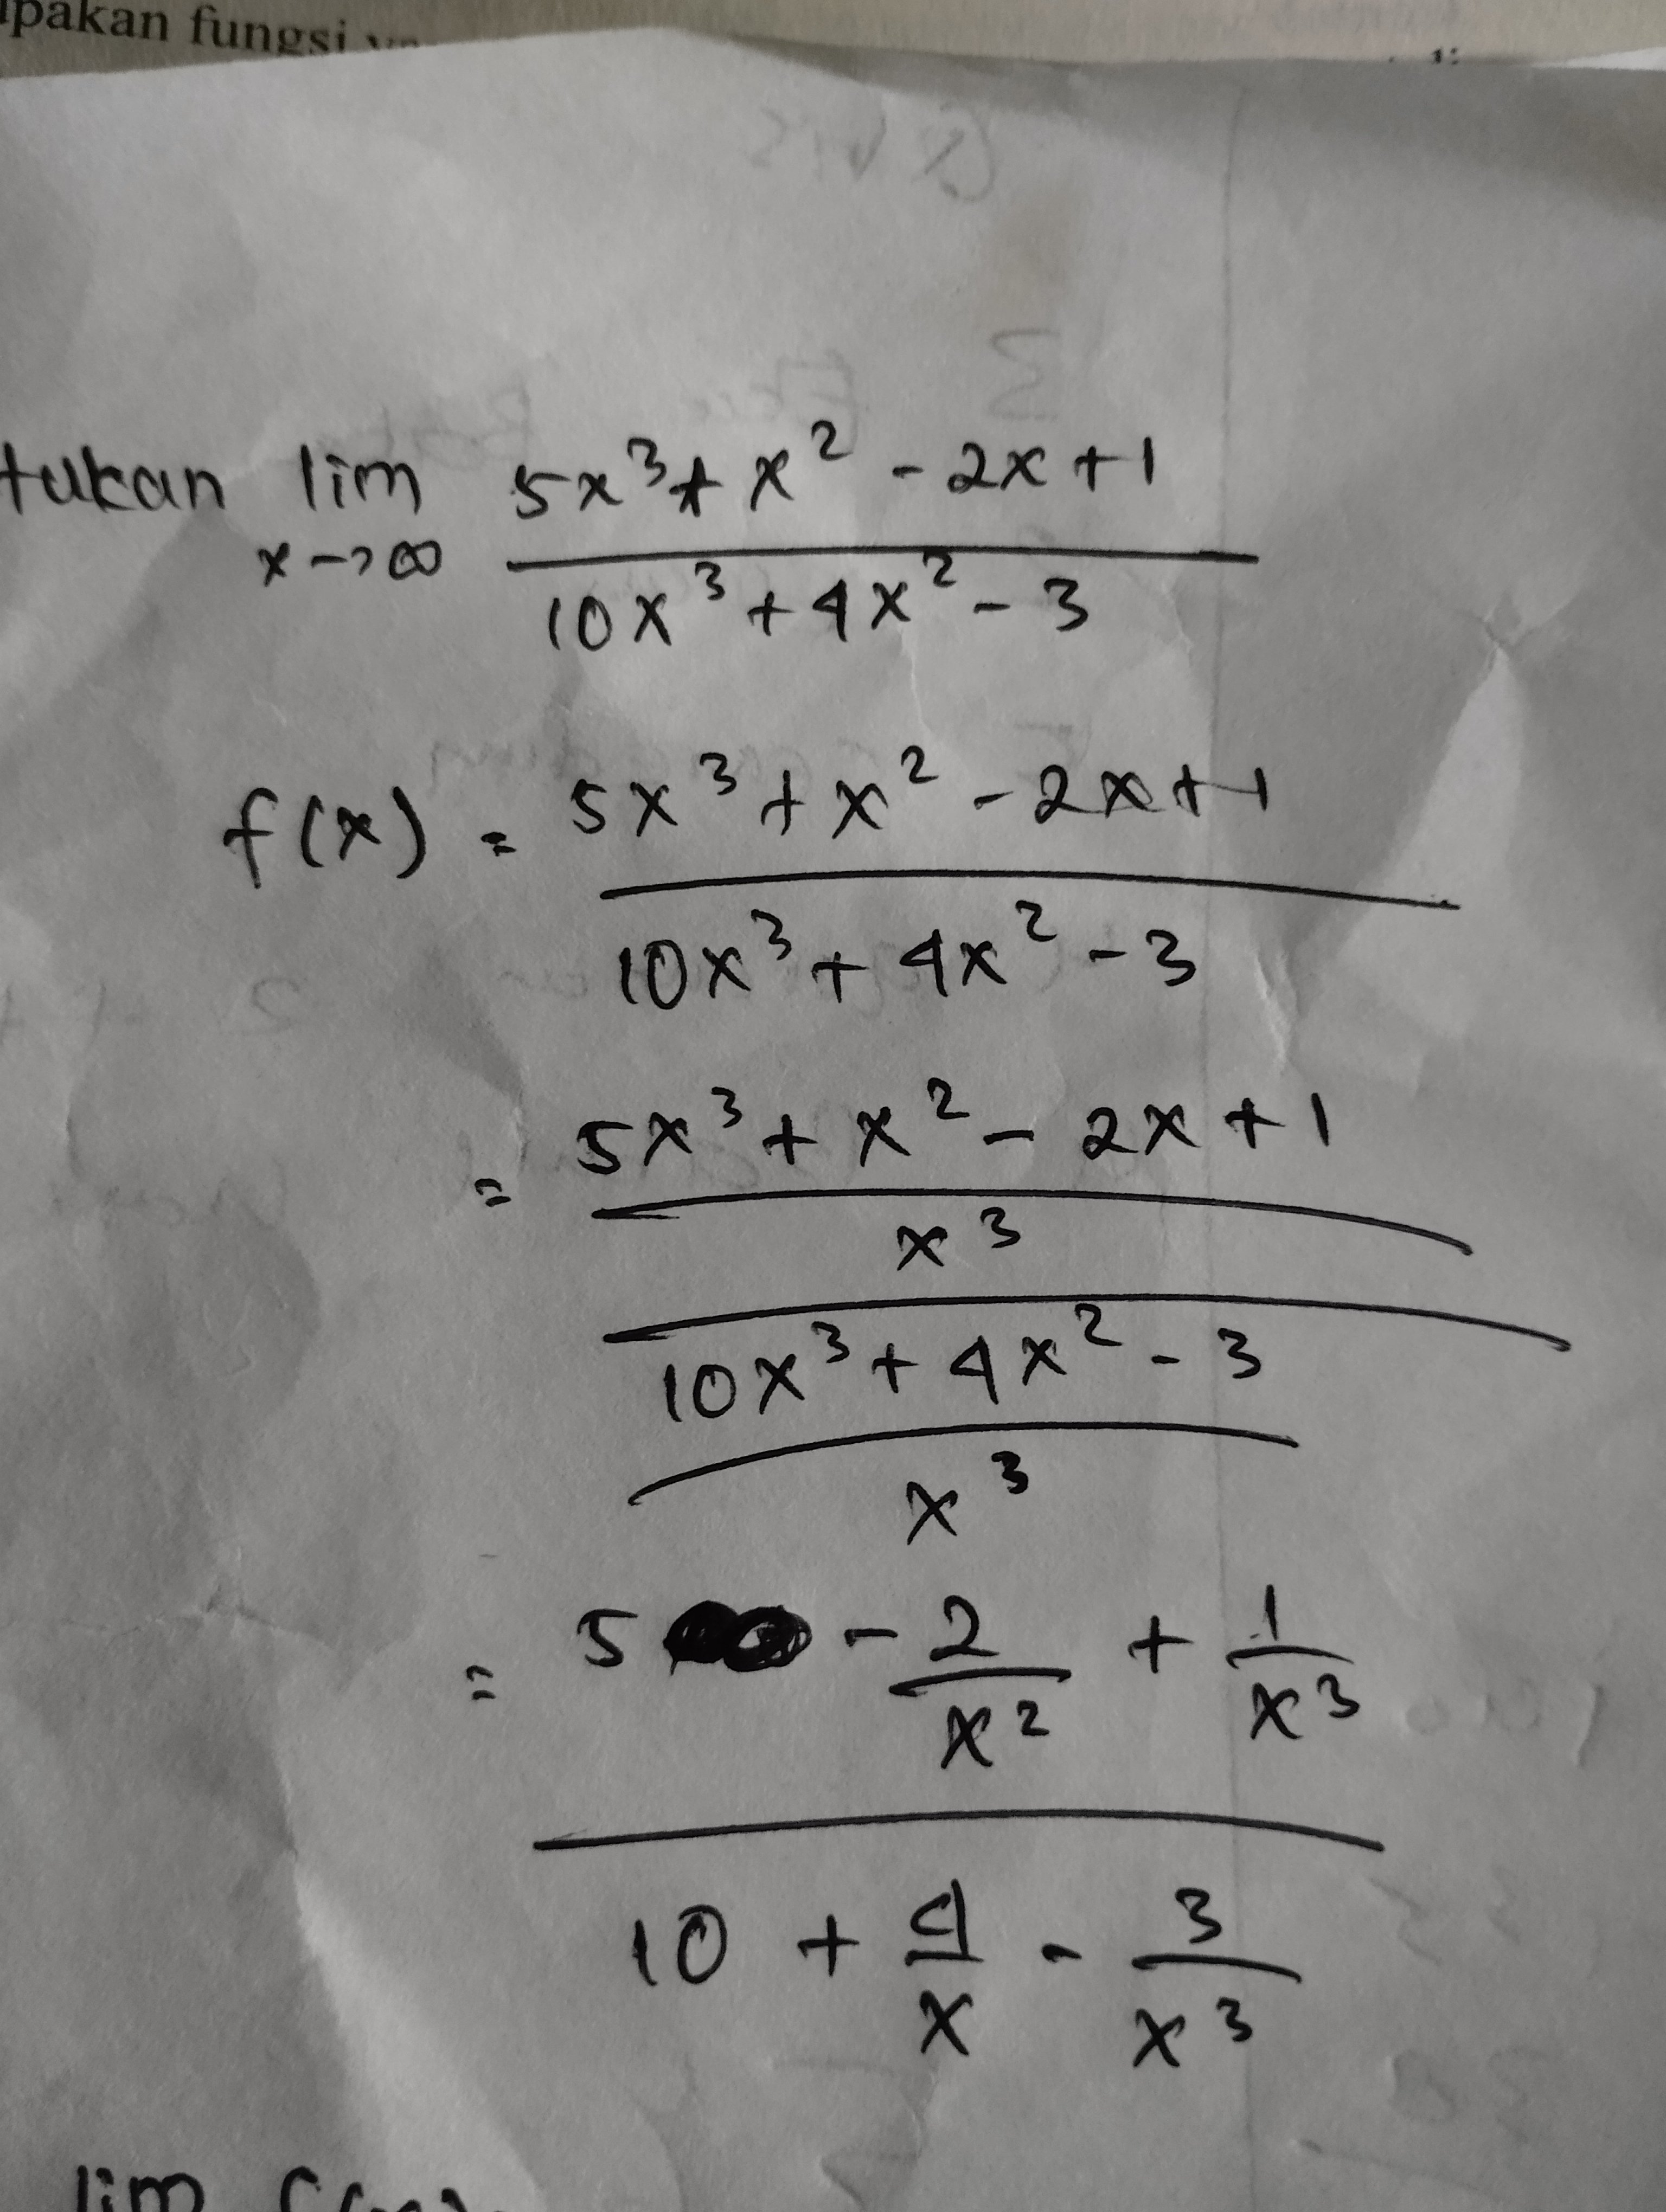 fungsi
lim 5x³ + x² - 2x + 1
x -> ∞ 10x³ + 4x² - 3
f(x) = 5x³ + x² - 2x + 1
10x³ + 4x² - 3
= 5x³ + x² - 2x + 1
x³
10x³ + 4x² - 3
x³
= 5 - 2/x² + 1/x³
10 + 4/x - 3/x³
lim